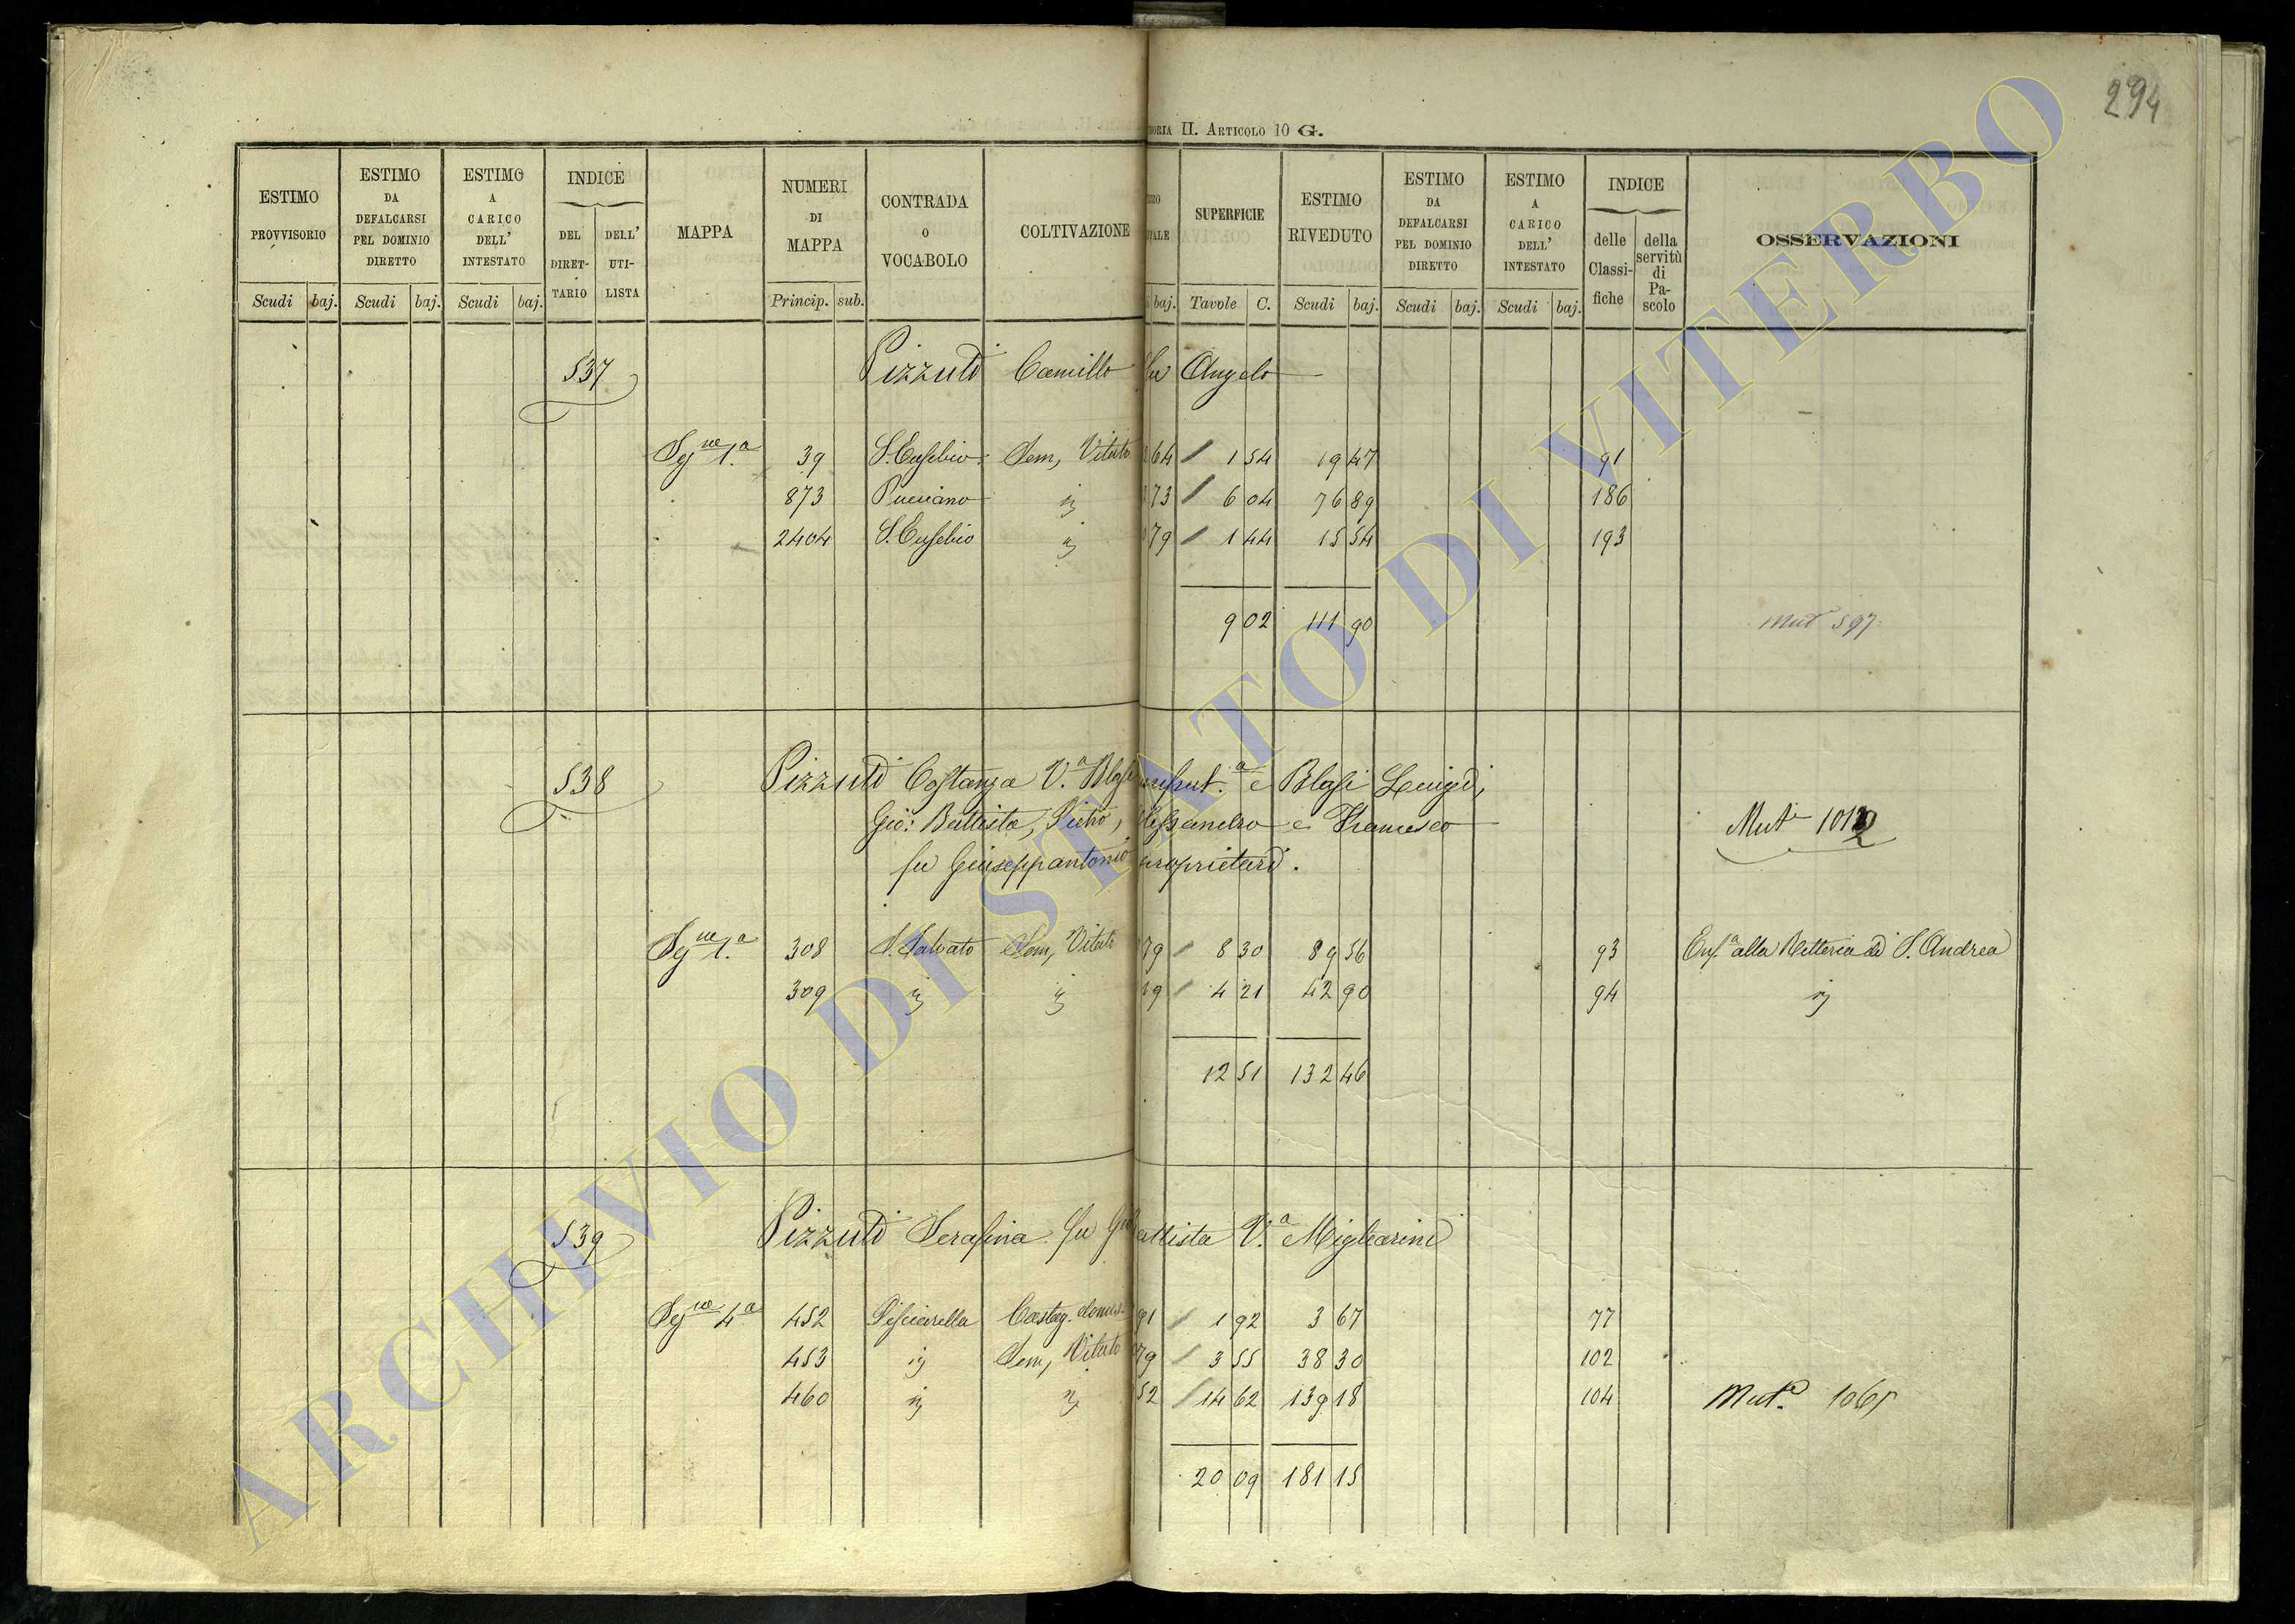 294
ORIA II. ARTICOLO 10 G.
ESTIMO PROVVISORIO Scudi baj.
ESTIMO DA DEFALCARSI PEL DOMINIO DIRETTO Scudi baj.
ESTIMO A CARICO DELL' INTESTATO Scudi baj.
INDICE DEL DIRETTARIO DELL' UTILISTA
MAPPA
NUMERI DI MAPPA Princip. sub.
CONTRADA O VOCABOLO
COLTIVAZIONE
baj.
SUPERFICIE Tavole C.
ESTIMO RIVEDUTO Scudi baj.
ESTIMO DA DEFALCARSI PEL DOMINIO DIRETTO Scudi baj.
ESTIMO A CARICO DELL' INTESTATO Scudi baj.
INDICE delle Classifiche della servitù di Pascolo
OSSERVAZIONI
537 Pizzuti Camillo fu Angelo
Sg.ne 1.a 39 S. Eusebio Sem, Vitato 64 1 54 19 47 91
873 73 6 04 76 89 186
2404 S. Eusebio 79 1 44 15 54 193
9 02 111 90
Mut.e 597
538 Pizzuti Costanza V.a Blasi usufrut.a e Blasi Luigi,
Gio: Battista, Pietro, Alessandro e Francesco
Mut.e 1012
fu Giuseppantonio proprietari.
Sg.ne 1.a 308 S. Salvato Sem, Vitato 79 8 30 89 56 93 Enf.a alla Retteria di S. Andrea
309 ij ij 19 4 21 42 90 94 ij
12 51 132 46
539 Pizzuti Serafina fu Gio Battista V.a Migliarini
Sg.ne 4.a 452 Pisciarella Castag. domes. 91 1 92 3 67 77
453 ij Sem, Vitato 79 3 55 38 30 102
460 ij ij 52 14 62 139 18 104 Mut.e 1065
20 09 181 15
ARCHIVIO DI STATO DI VITERBO